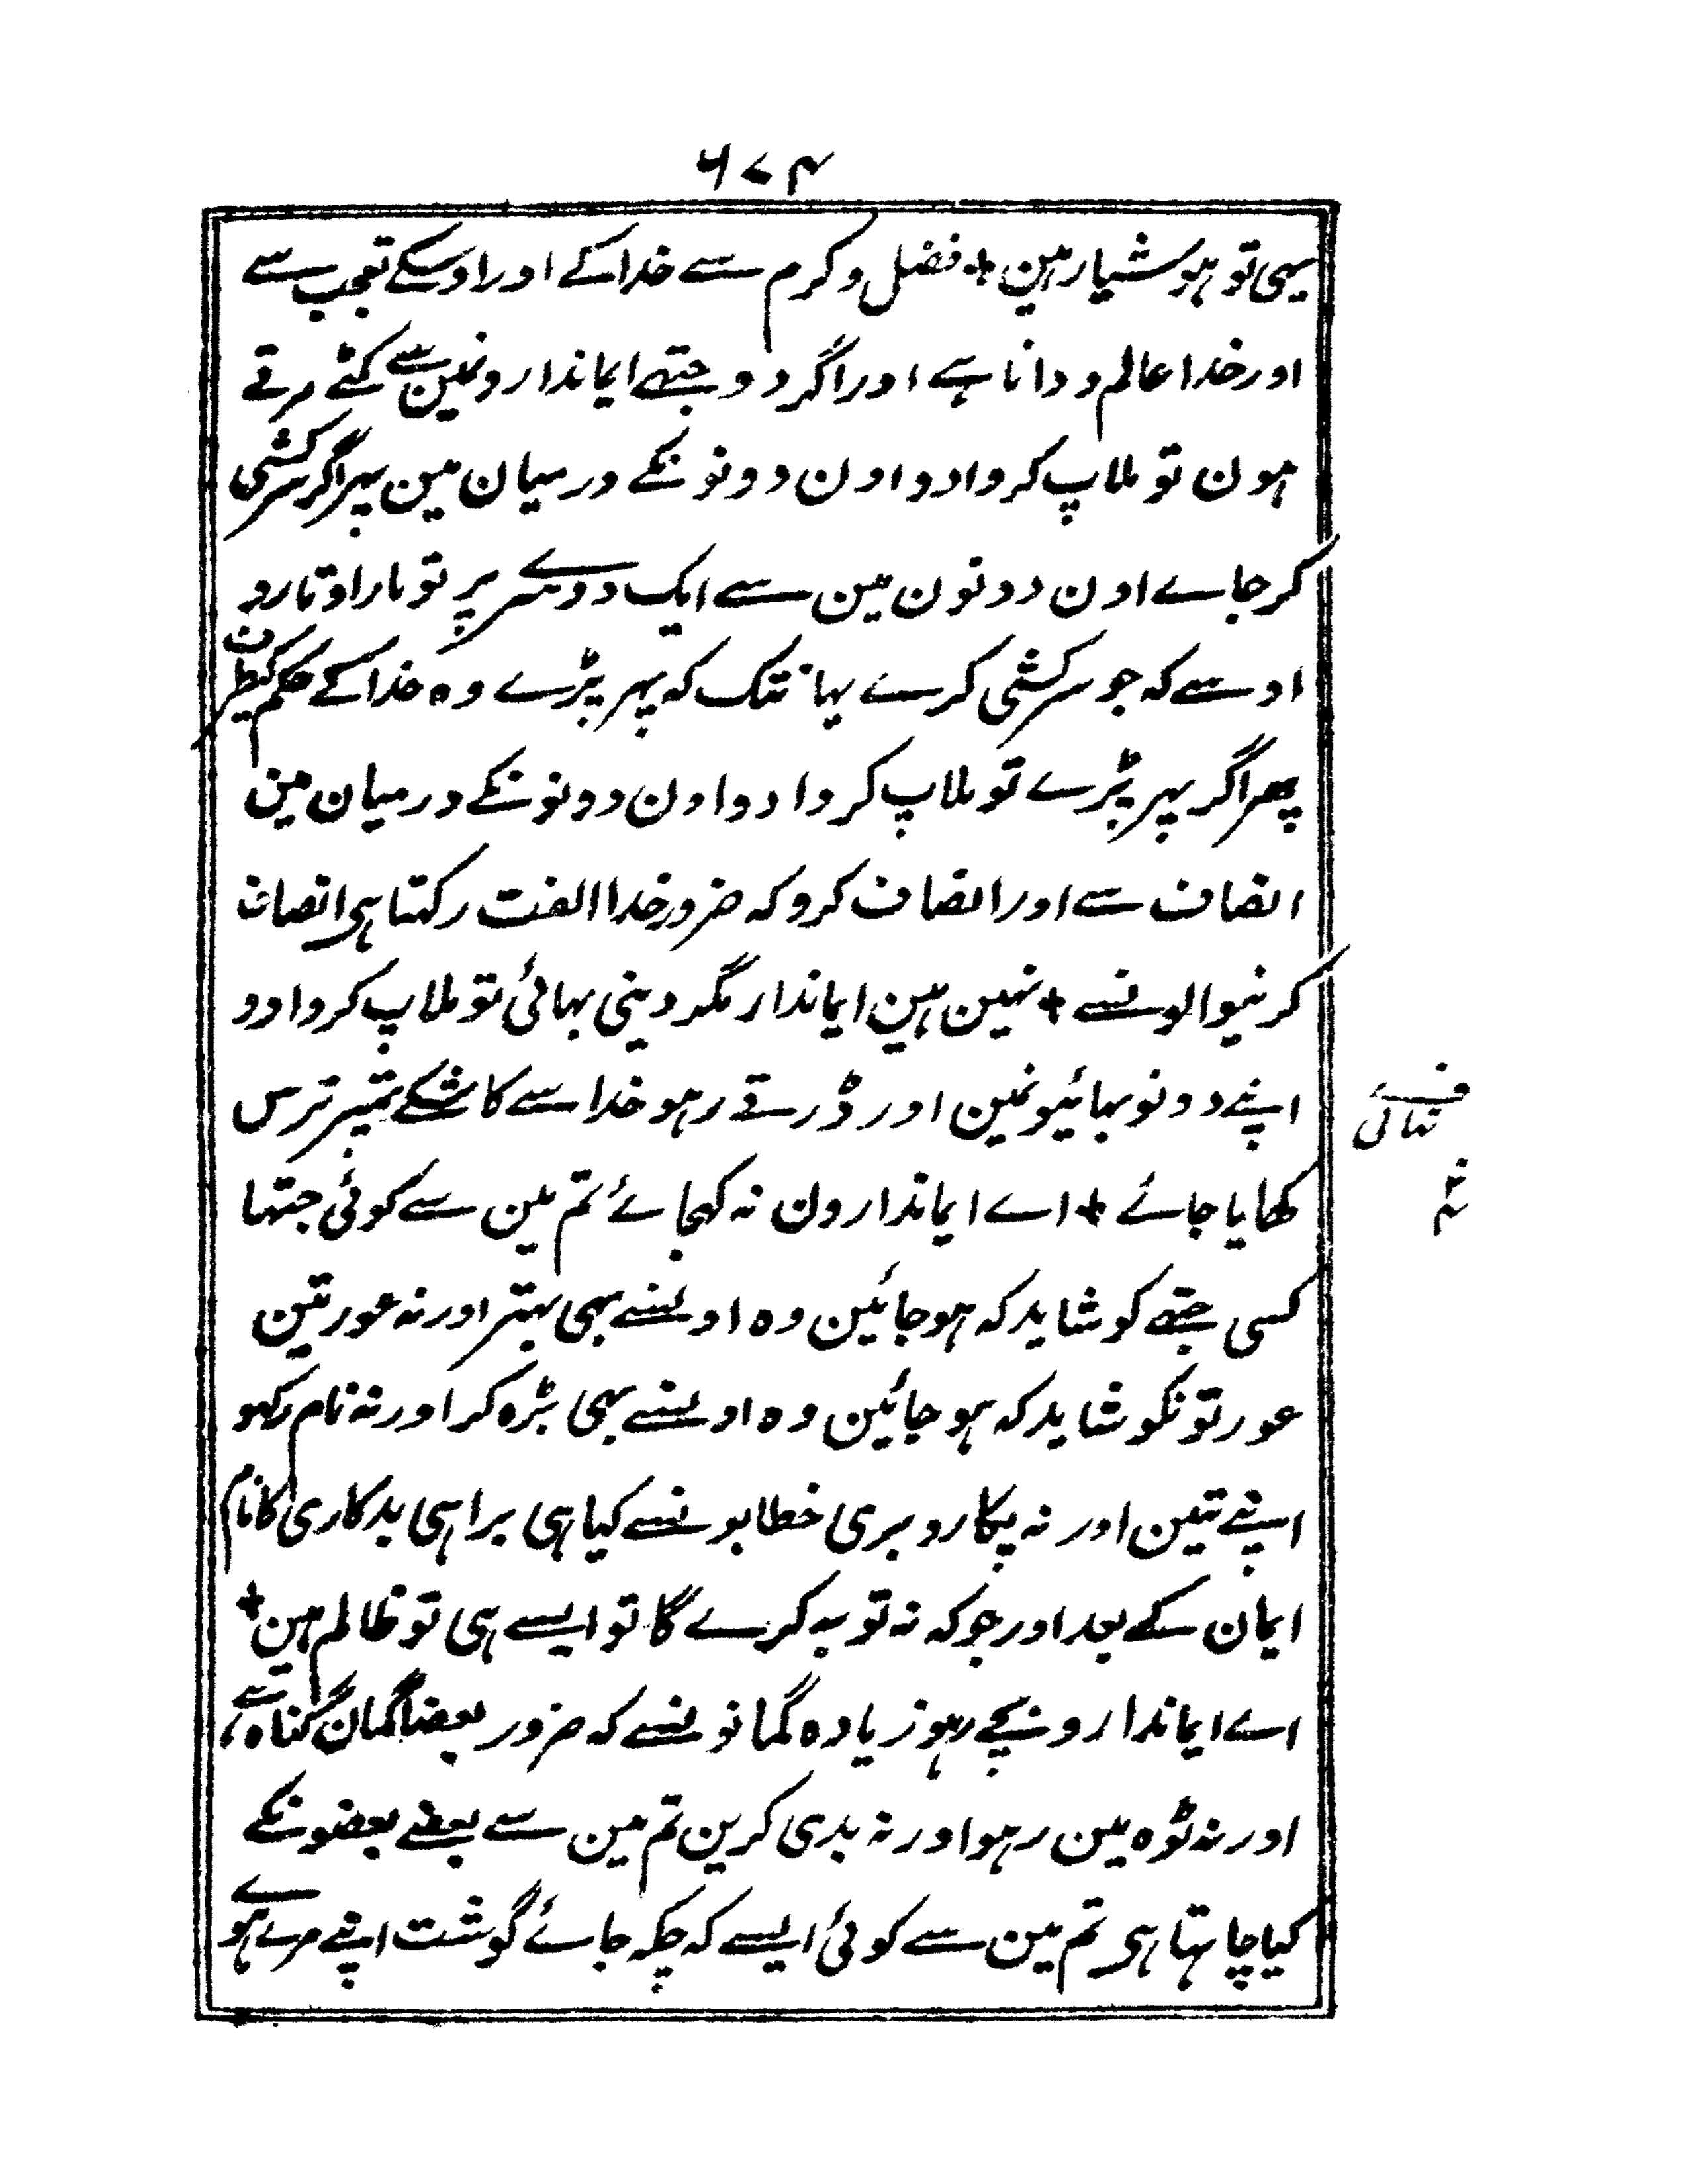 ۶۷۴
یہی تو ہوشیار ہین + فضل و کرم سے خدا کے اور اوسکے تعجب سے
اور خدا عالم و دانا ہے اور اگر دو جتھے ایماندارونمین سے کٹے مرتے
ہون تو ملاپ کروادو اون دونونکے درمیان مین پہر اگر سرکشی
کر جاے اون دونون مین سے ایک دوسرے پر تو مارا وتارو
اوسے کہ جو سرکشی کرے یہانتک کہ پہر پڑے وہ خدا کے حکم کیطرن
پھر اگر پہر پڑے تو ملاپ کروادو اون دونونکے درمیان مین
انصاف سے اور انصاف کرو کہ ضرور خدا الفت رکہتا ہی انصاف
کرنیوالونسے + نہین ہین ایماندار مگر دینی بہائی تو ملاپ کروادو
اپنے دونو بہائیونمین اور ڈرتے رہو خدا سے کاشکے تمپر ترس
کھایا جائے + اے ایماندارون نہ کہجائے تم مین سے کوئی جتہا
کسی جتھے کو شاید کہ ہو جائین وہ اونسے بہی بہتر اور نہ عورتین
عورتونکو شاید کہ ہو جائین وہ اونسے بہی بڑہ کر اور نہ نام رکہو
اپنے تئین اور نہ پکارو بری خطابونسے کیا ہی برا ہی بدکاری کا نام
ایمان کے بعد اور جو کہ نہ توبہ کرے گا تو ایسے ہی تو ظالم ہین +
اے ایماندارو بچے رہو زیادہ گمانونسے کہ ضرور بعضا گمان گناہ ہے،
اور نہ ٹوہ مین رہو اور نہ بدی کرین تم مین سے بعضے بعضونکے
کیا چاہتا ہی تم مین سے کوئی ایسے کہ چکہ جائے گوشت اپنے مرے ہوے